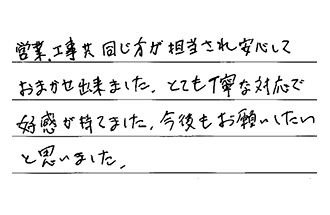 営業、工事共同じ方が担当され安心して
おまかせ出来ました。とても丁寧な対応で
好感が持てました。今後もお願いしたい
と思いました。